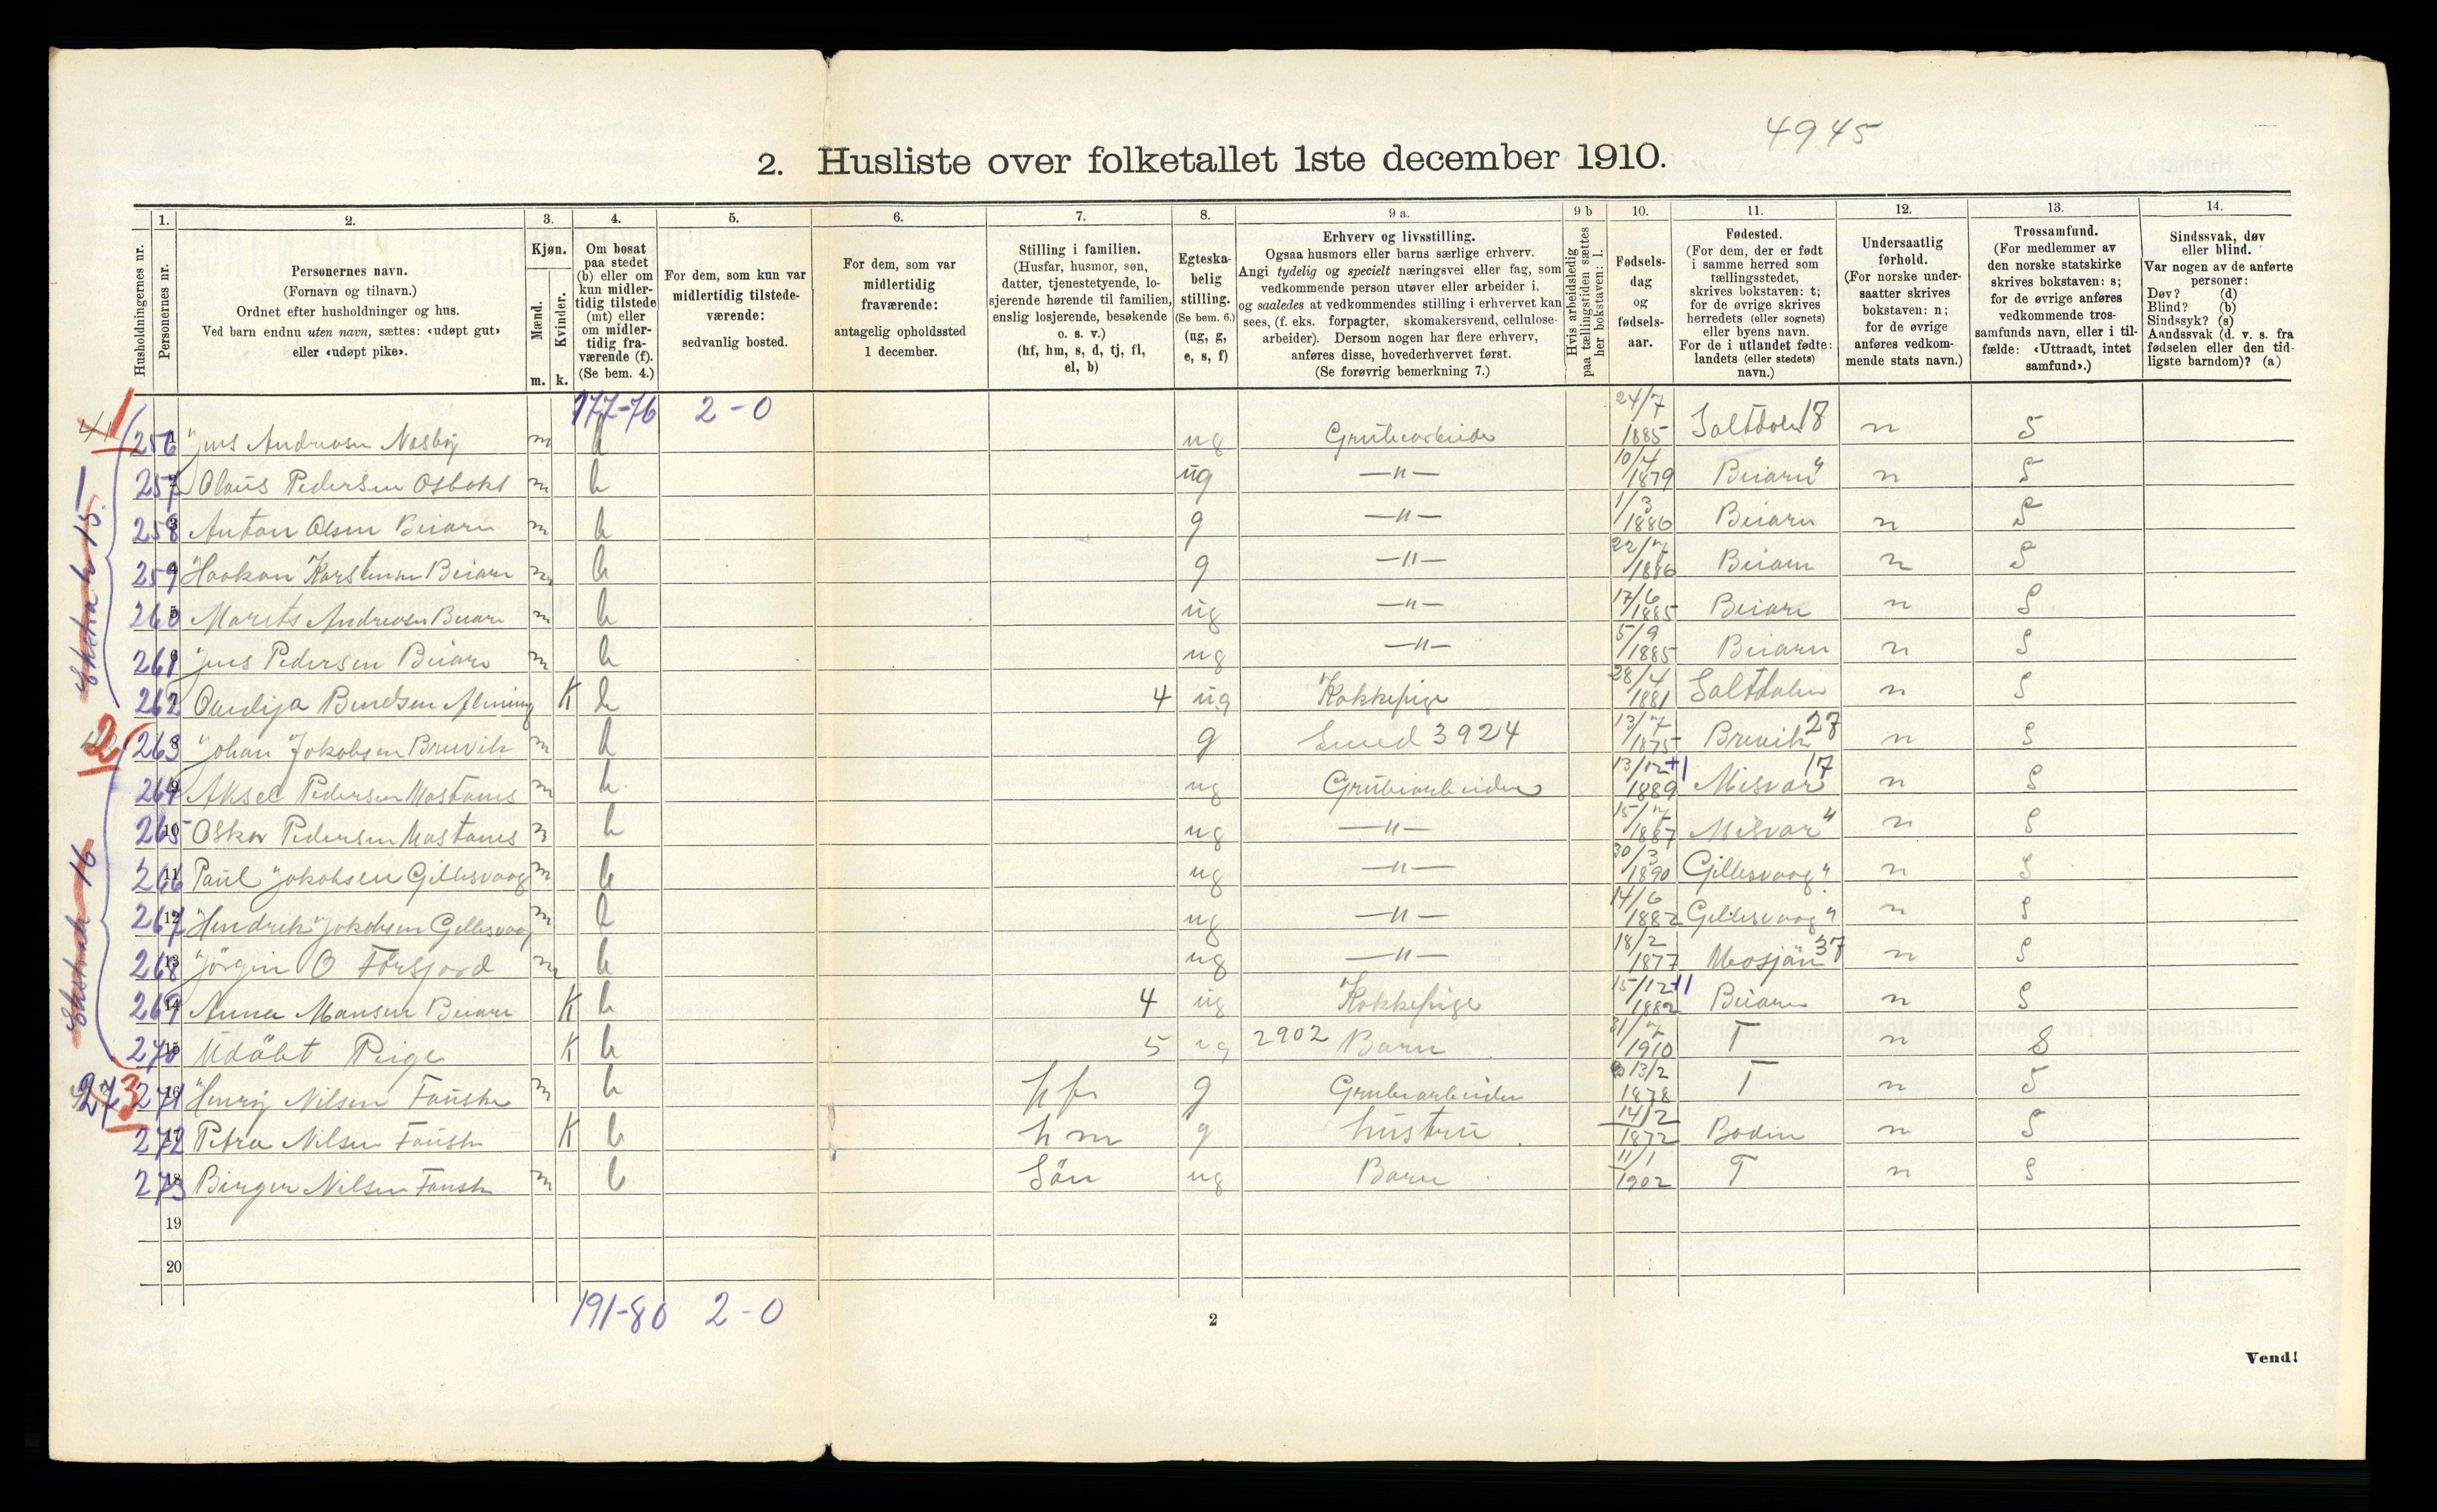 4945
2. Husliste over folketallet 1ste december 1910.
1. 2. 3. 4. 5. 6. 7. 8. 9 a. 9 b 10. 11. 12. 13. 14.
Husholdningernes nr.
Personernes nr.
Personernes navn.
(Fornavn og tilnavn.)
Ordnet efter husholdninger og hus.
Ved barn endnu uten navn, sættes: «udøpt gut»
eller «udøpt pike».
Kjøn.
Mænd.
Kvinder.
m. k.
Om bosat
paa stedet
(b) eller om
kun midler-
tidig tilstede
(mt) eller
om midler-
tidig fra-
værende (f).
(Se bem. 4.)
For dem, som kun var
midlertidig tilstede-
værende:
sedvanlig bosted.
For dem, som var
midlertidig
fraværende:
antagelig opholdssted
1 december.
Stilling i familien.
(Husfar, husmor, søn,
datter, tjenestetyende, lo-
sjerende hørende til familien,
enslig losjerende, besøkende
o. s. v.)
(hf, hm, s, d, tj, fl,
el, b)
Egteska-
belig
stilling.
(Se bem. 6.)
(ug, g,
e, s, f)
Erhverv og livsstilling.
Ogsaa husmors eller barns særlige erhverv.
Angi tydelig og specielt næringsvei eller fag, som
vedkommende person utøver eller arbeider i,
og saaledes at vedkommendes stilling i erhvervet kan
sees, (f. eks. forpagter, skomakersvend, cellulose-
arbeider). Dersom nogen har flere erhverv,
anføres disse, hovederhvervet først.
(Se forøvrig bemerkning 7.)
Hvis arbeidsledig
paa tællingstiden sættes
her bokstaven: l.
Fødsels-
dag
og
fødsels-
aar.
Fødested.
(For dem, der er født
i samme herred som
tællingsstedet,
skrives bokstaven: t;
for de øvrige skrives
herredets (eller sognets)
eller byens navn.
For de i utlandet fødte:
landets (eller stedets)
navn.)
Undersaatlig
forhold.
(For norske under-
saatter skrives
bokstaven: n;
for de øvrige
anføres vedkom-
mende stats navn.)
Trossamfund.
(For medlemmer av
den norske statskirke
skrives bokstaven: s;
for de øvrige anføres
vedkommende tros-
samfunds navn, eller i til-
fælde: «Uttraadt, intet
samfund».)
Sindssvak, døv
eller blind.
Var nogen av de anførte
personer:
Døv? (d)
Blind? (b)
Sindssyk? (s)
Aandssvak (d. v. s. fra
fødselen eller den tid-
ligste barndom)? (a)
177-76 2-0
256 1 Jens Andreasen Nesby m b ug Grubearbeider 24/7 1885 Saltdalen 18 n S
257 Olaus Pedersen Osbakk m b ug —"— 10/4 1879 Beiarn " n S
258 3 Anton Olsen Beiarn m b g —"— 1/3 1886 Beiarn n S
259 4 Haakon Karstensen Beiarn m b g —"— 22/7 1886 Beiarn n S
260 5 Andreasen Beiarn m b ug —"— 17/6 1885 Beiarn n S
261 6 Jens Pedersen Beiarn m b ug —"— 5/9 1885 Beiarn n S
262 Bendsen K b 4 ug Kokkepige 28/4 1881 Saltdalen n S
263 8 Johan Jokobsen Breivik m b g Smed 3924 13/7 1875 Breivik 27 n S
264 9 Aksel Pedersen m b ug Grubearbeider 13/12 +1 1889 Misvær 17 n S
265 10 Oskar Pedersen m b ug —"— 15/7 1887 Misvær " n S
266 11 Paul Jokobsen Gillesvaag m b ug —"— 30/3 1890 Gillesvaag " n S
267 12 Hendrik Jokobsen Gillesvaag m b ug —"— 14/6 1882 Gillesvaag " n S
268 13 Jörgen O Forsjord m b ug —"— 18/2 1877 Mosjøen 37 n S
269 14 Anna Hansen Beiarn K b 4 ug Kokkepige 15/12 +1 1882 Beiarn n S
270 15 Udöbt Peige K b 5 ug 2902 Barn 31/7 1910 T n S
271 16 Henry Nilsen Fauske m b hf g Grubearbeider 13/2 1878 T n S
272 17 Petra Nilsen Fauske K b hm g hustru 14/2 1872 Bodin n S
273 18 Birger Nilsen Fauske m b Sön ug Barn 11/1 1902 T n S
19
20
191-80 2-0
2
Vend!